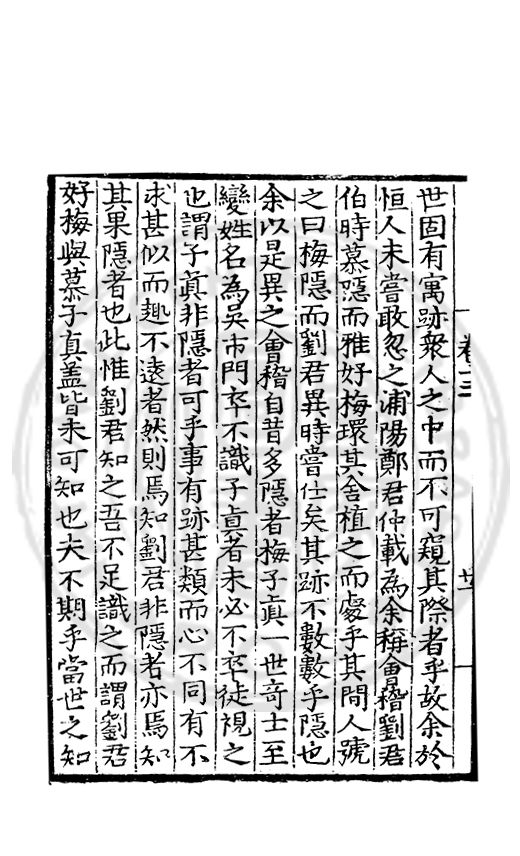 世固有寓跡衆人之中而不可窺其際者乎故余於
恒人未嘗敢忽之浦陽鄭君仲載為余稱會稽劉君
伯時慕隱而雅好梅環其舍植之而處乎其間人號
之曰梅隱而劉君異時嘗仕矣其跡不數數乎隱也
余以是異之會稽自昔多隱者梅子眞一世竒士至
變姓名為吳市門卒不識子眞者未必不卒徒視之
也謂子眞非隱者可乎事有跡甚類而心不同有不
求甚似而趣不逺者然則焉知劉君非隱者亦焉知
其果隱者也此惟劉君知之吾不足識之而謂劉君
好梅與慕子真盖皆未可知也夫不期乎當世之知